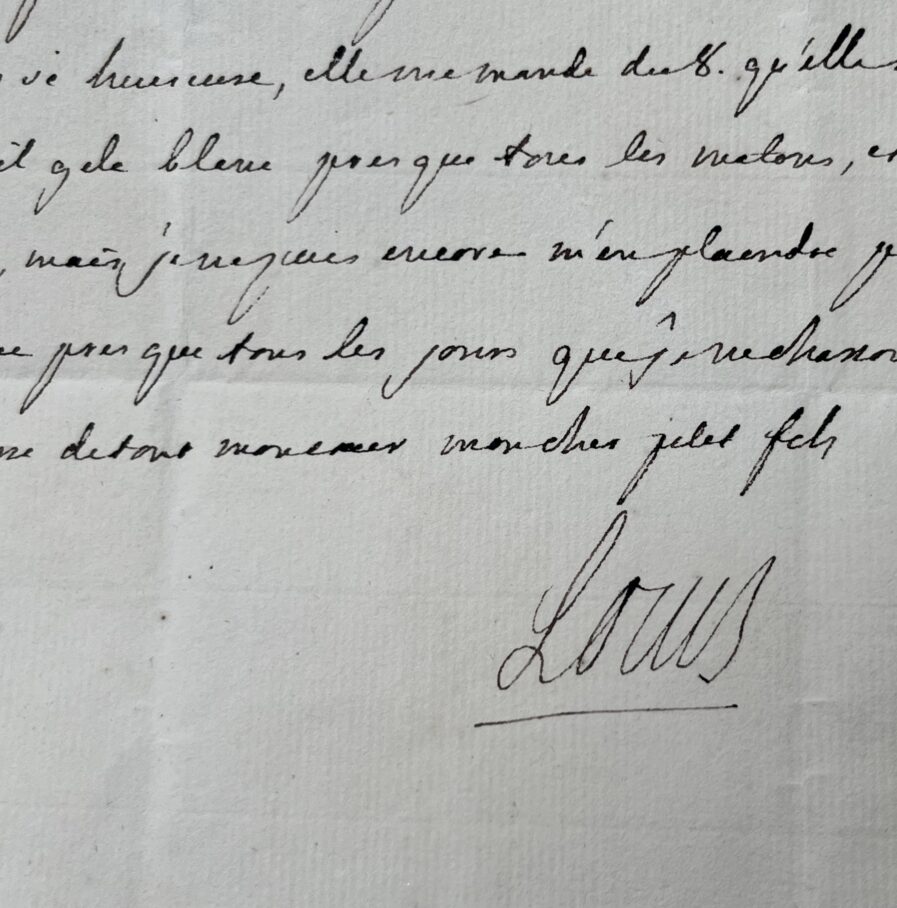 si heureuse, elle me mande du 8. qu'elle
il gele blanc presque tous les matins, et
, mais je ne puis encore m'en plaindre p
presque tous les jours que je ne chasse
de tout mon cœur mon cher petit fils
Louis